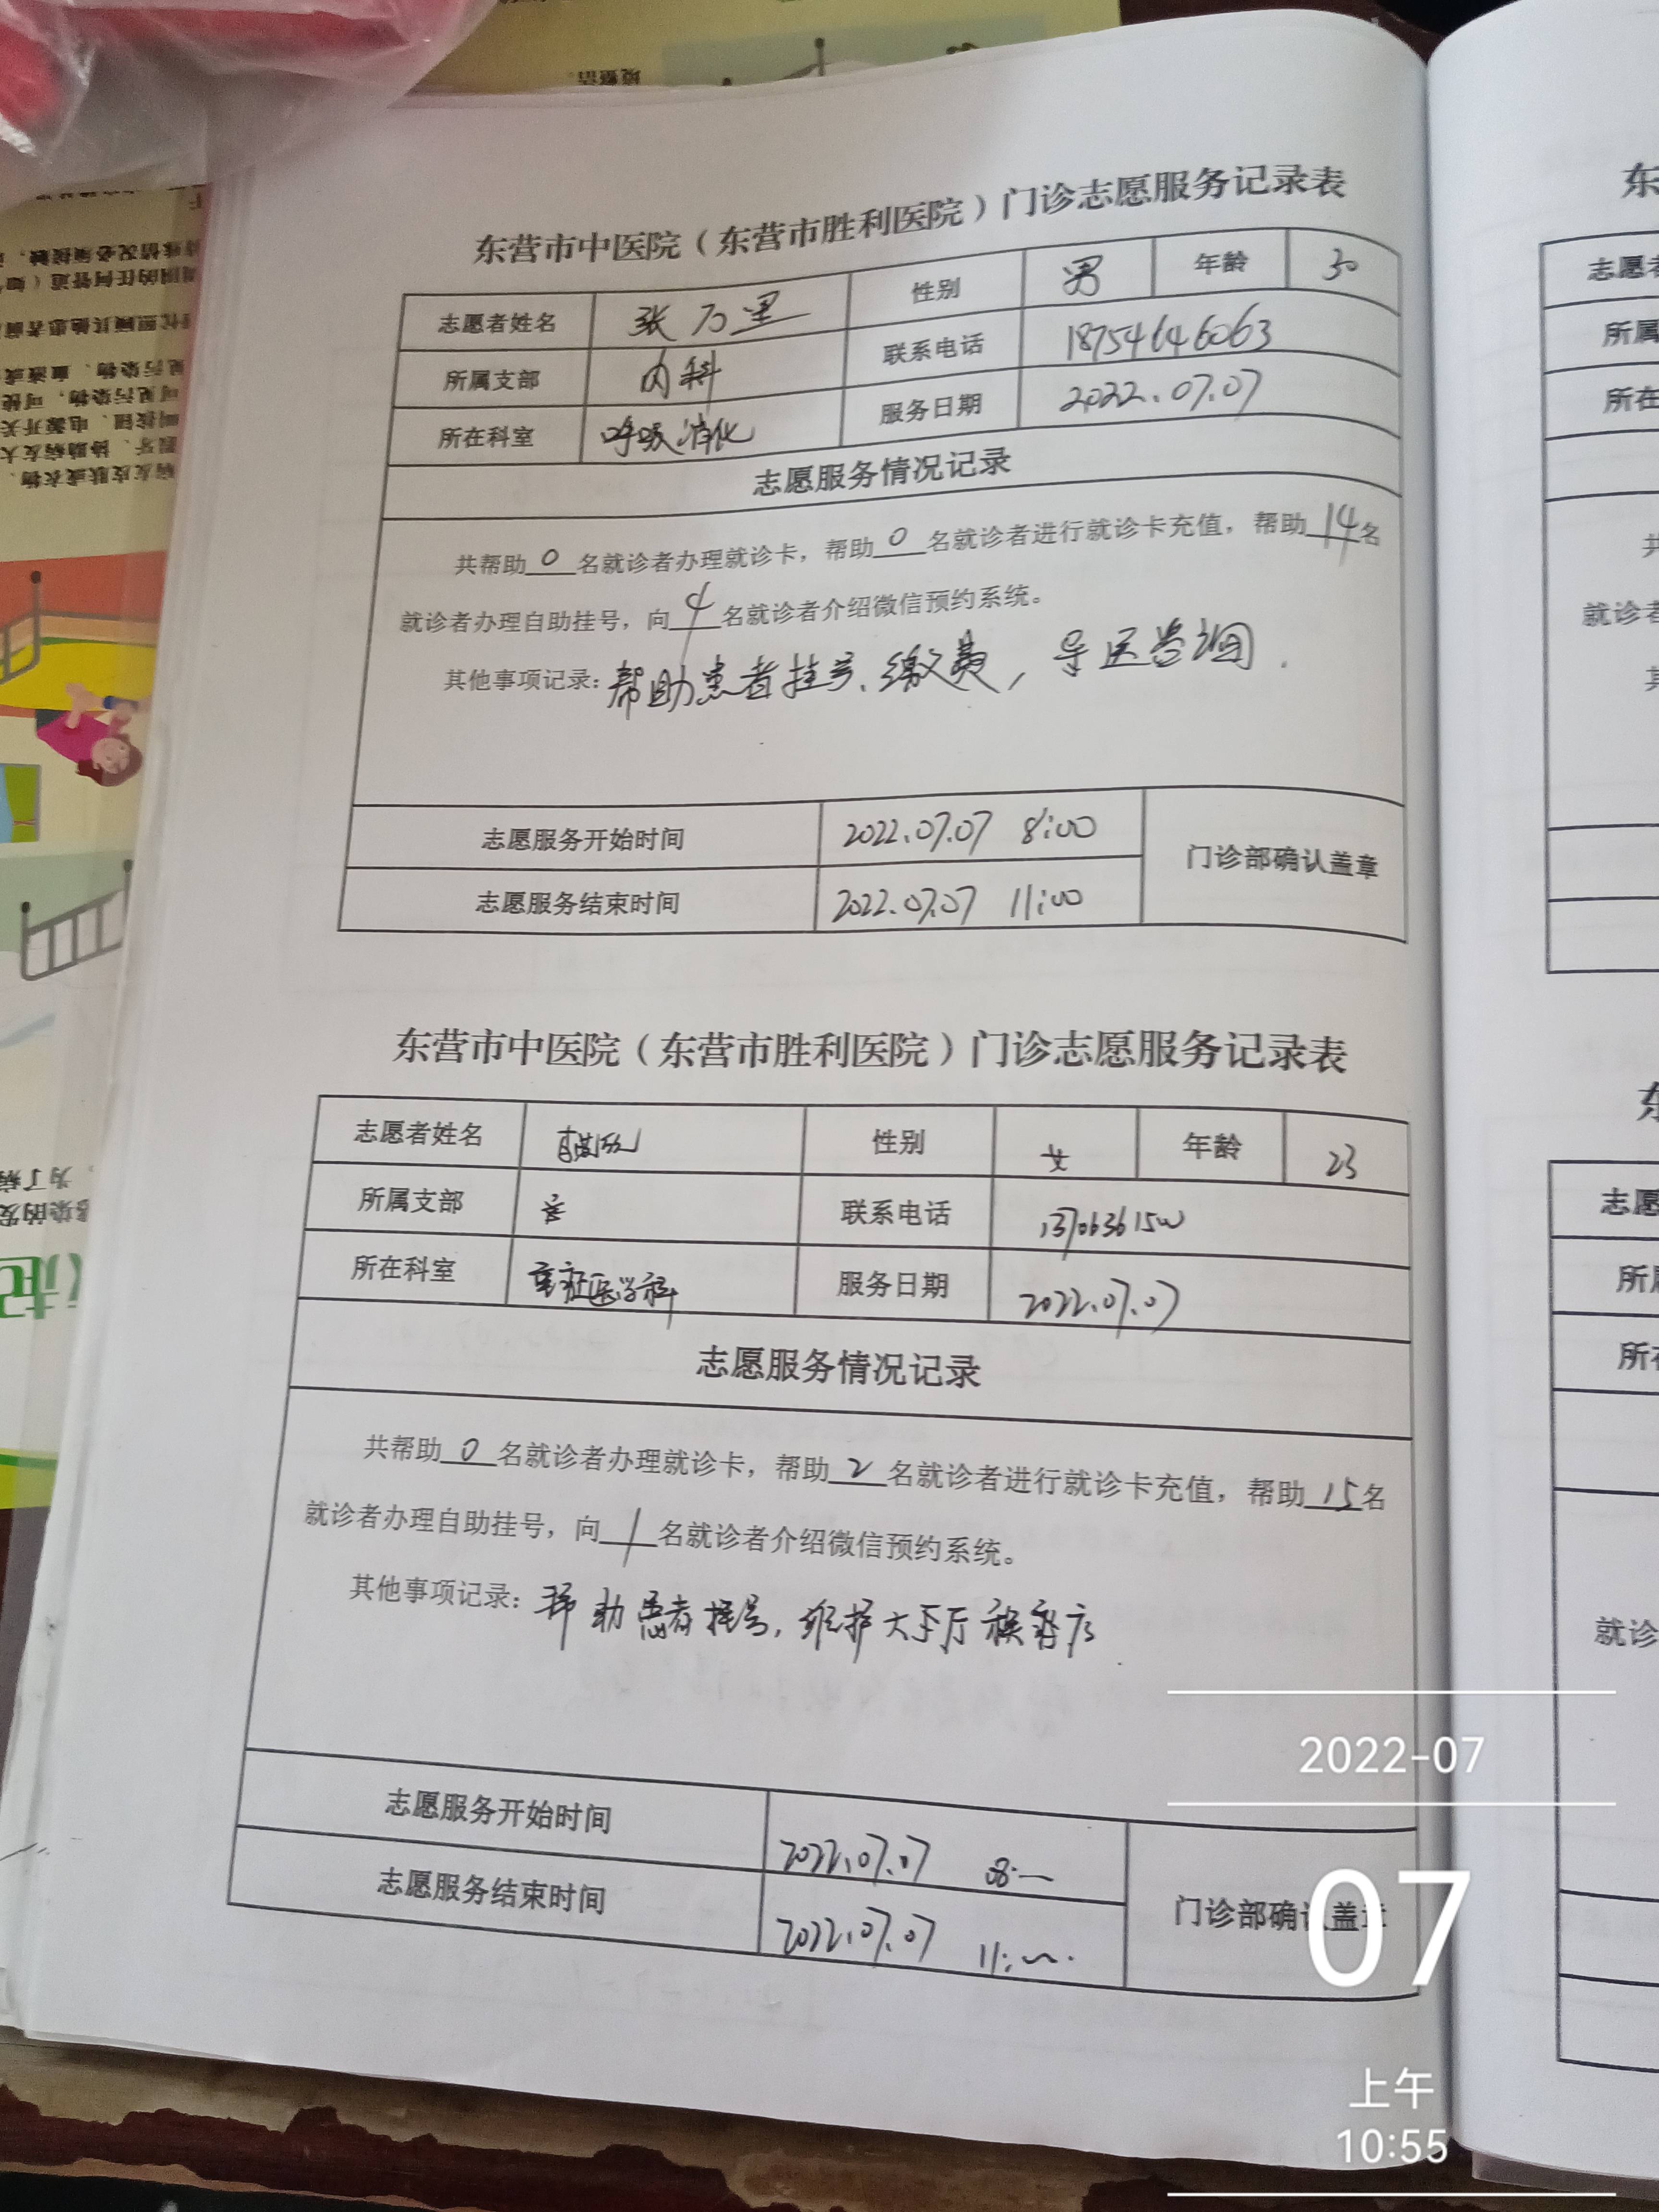 东营市中医院（东营市胜利医院）门诊志愿服务记录表
志愿者姓名 张万里 性别 男 年龄 30
所属支部 内科 联系电话 18754646063
所在科室 呼吸消化 服务日期 2022.07.07
志愿服务情况记录
共帮助0名就诊者办理就诊卡，帮助0名就诊者进行就诊卡充值，帮助14名
就诊者办理自助挂号，向4名就诊者介绍微信预约系统。
其他事项记录：帮助患者挂号、缴费，导医咨询.
志愿服务开始时间 2022.07.07 8:00
门诊部确认盖章
志愿服务结束时间 2022.07.07 11:00
东营市中医院（东营市胜利医院）门诊志愿服务记录表
志愿者姓名 性别 女 年龄 23
所属支部 联系电话
所在科室 重症医学科 服务日期 2022.07.07
志愿服务情况记录
共帮助0名就诊者办理就诊卡，帮助2名就诊者进行就诊卡充值，帮助15名
就诊者办理自助挂号，向1名就诊者介绍微信预约系统。
其他事项记录：帮助患者挂号，维护大厅秩序
志愿服务开始时间 2022.07.07
门诊部确认盖章
志愿服务结束时间 2022.07.07
2022-07
07
上午
10:55